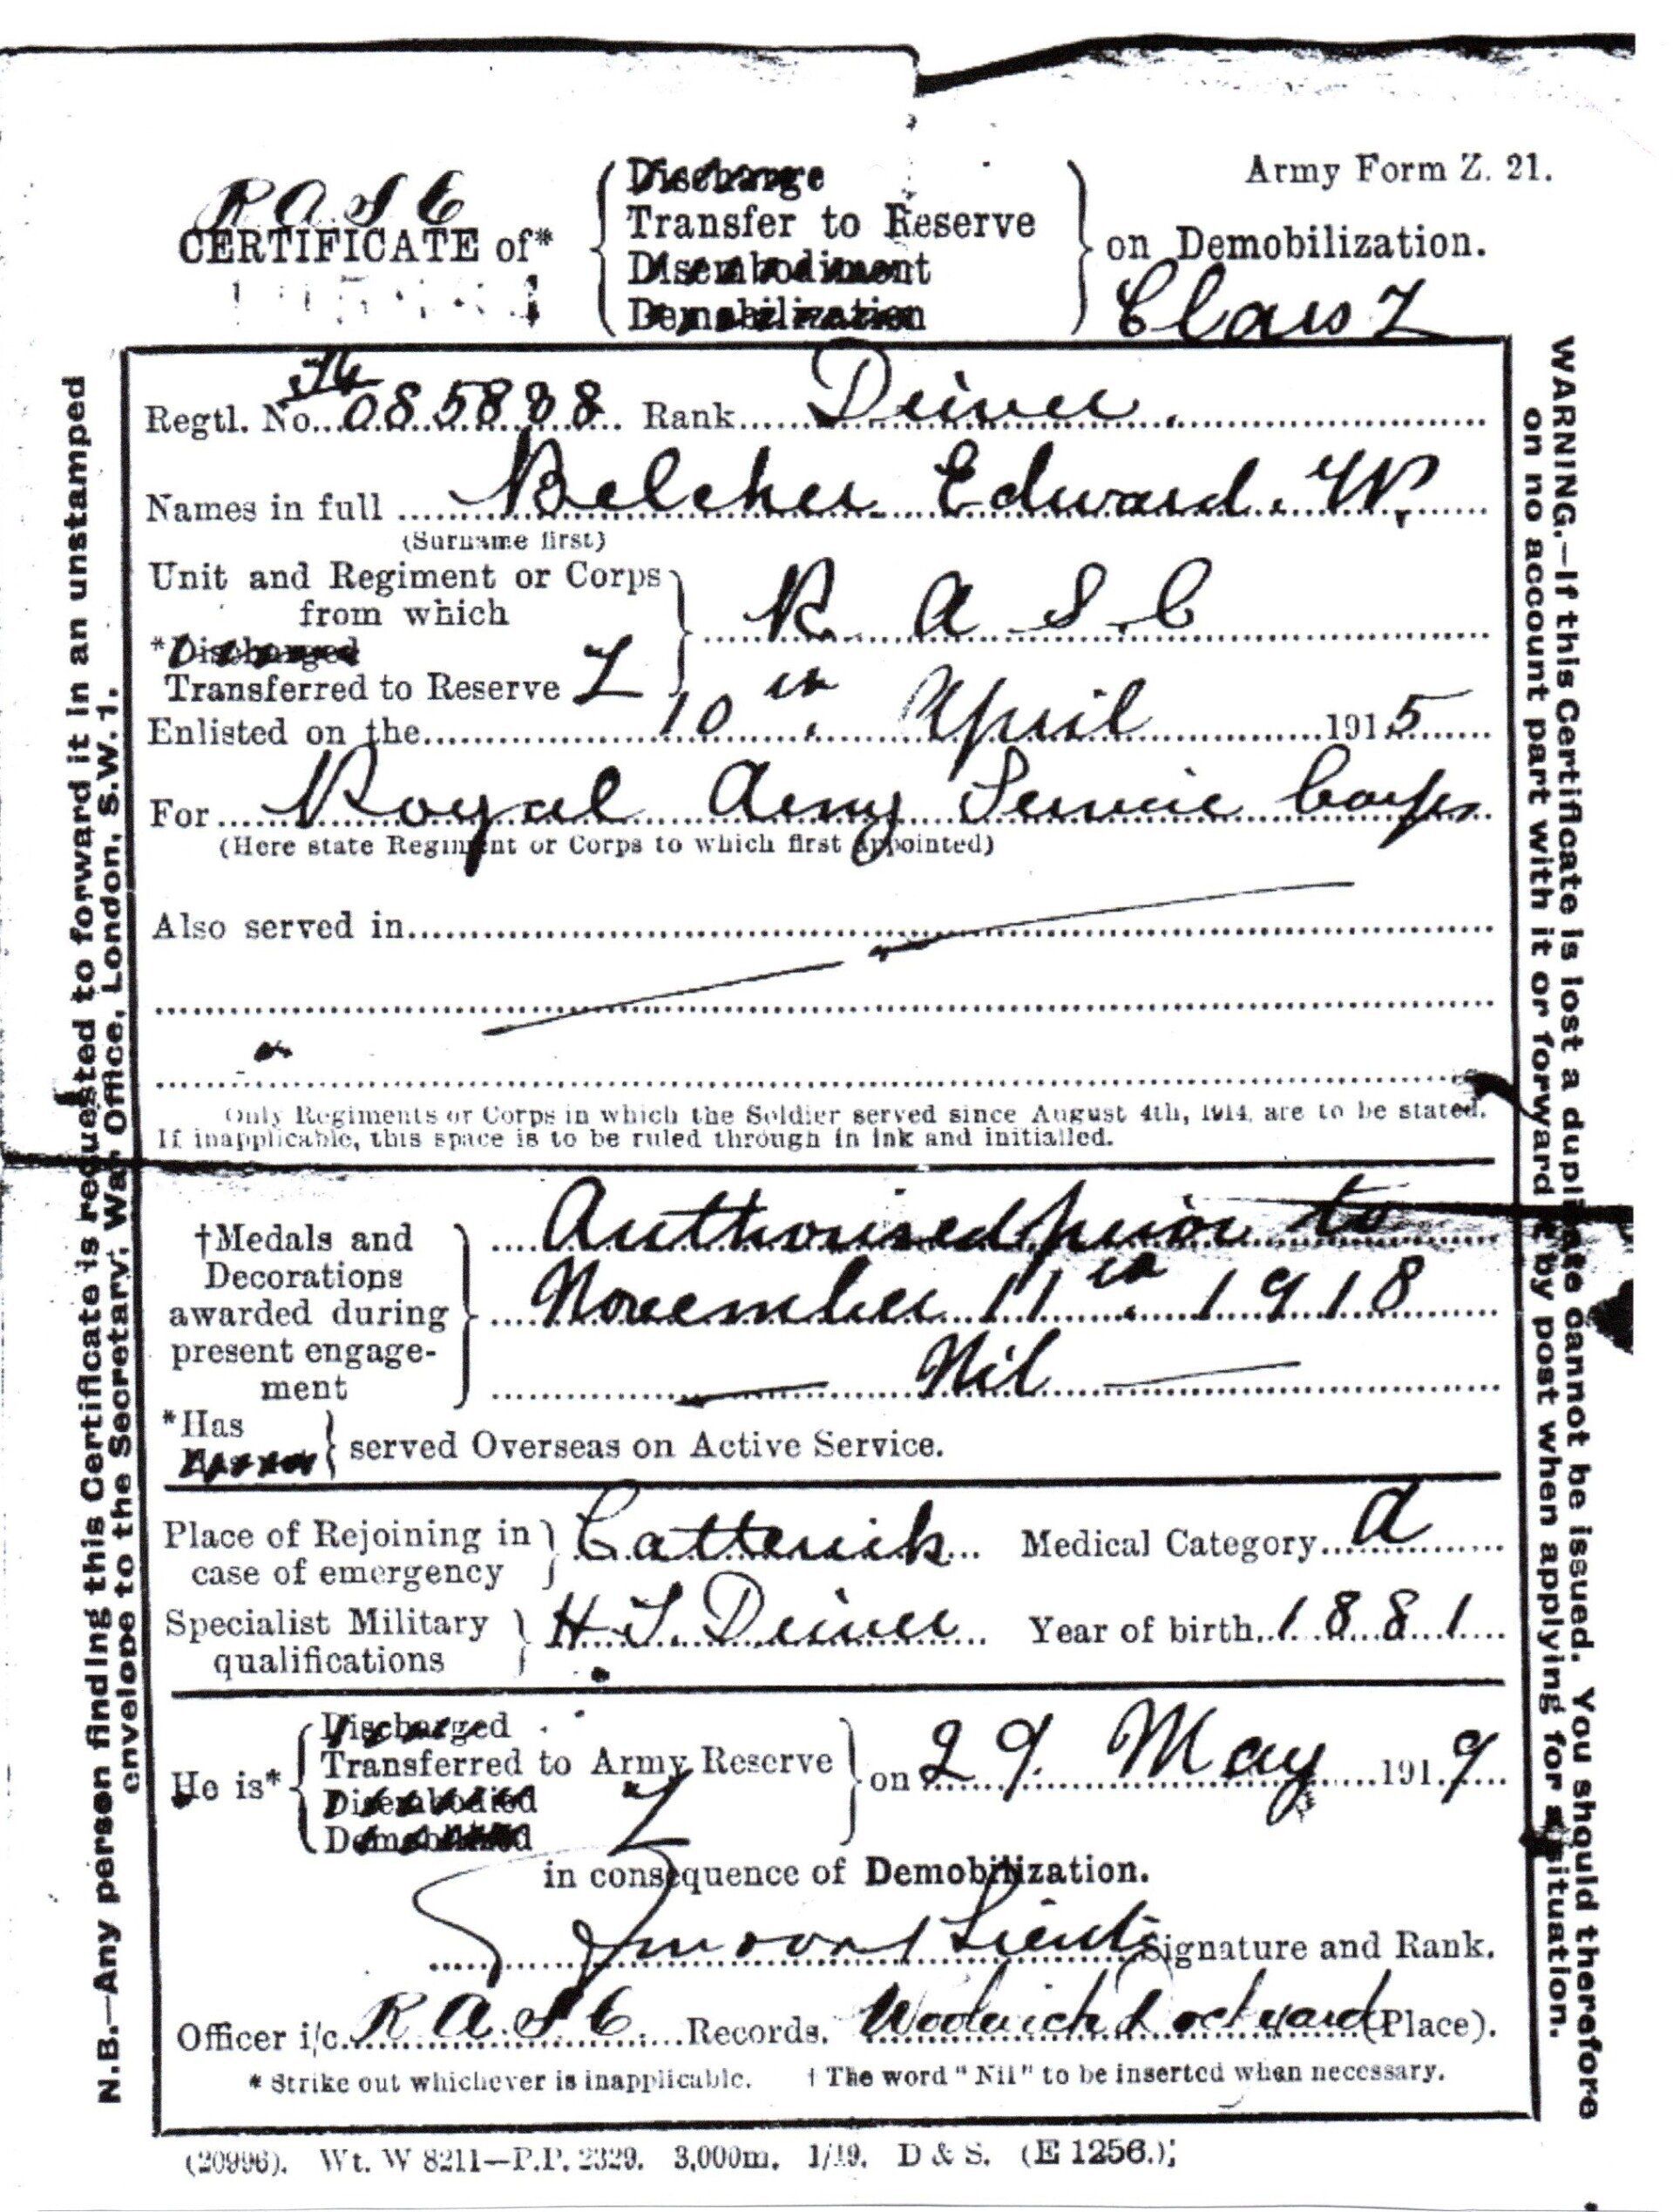 Army Form Z. 21.
R A S C
CERTIFICATE of*
Discharge
Transfer to Reserve
Disembodiment
Demobilization
on Demobilization.
Class Z
Regtl. No. 085888 Rank Driver.
Names in full Belcher Edward. W.
(Surname first)
Unit and Regiment or Corps
from which
*Discharged
Transferred to Reserve Z
R A S C
Enlisted on the 10th April 1915
For Royal Army Service Corps
(Here state Regiment or Corps to which first appointed)
Also served in
Only Regiments or Corps in which the Soldier served since August 4th, 1914, are to be stated.
If inapplicable, this space is to be ruled through in ink and initialled.
†Medals and
Decorations
awarded during
present engage-
ment
Authorised prior to
November 11th 1918
Nil
*Has
served Overseas on Active Service.
Place of Rejoining in
case of emergency
Catterick Medical Category A
Specialist Military
qualifications
H.T. Driver Year of birth 1881
He is*
Discharged
Transferred to Army Reserve Z
Disembodied
Demobilized
on 29. May 1919
in consequence of Demobilization.
Lieut Signature and Rank.
Officer i/c. R A S C Records. Woolwich Dockyard (Place).
* Strike out whichever is inapplicable. † The word "Nil" to be inserted when necessary.
(20996). Wt. W 8211—P.P. 2329. 3,000m. 1/19. D & S. (E 1256.)
N.B.—Any person finding this Certificate is requested to forward it in an unstamped
envelope to the Secretary, War Office, London, S.W. 1.
WARNING.—If this Certificate is lost a duplicate cannot be issued. You should therefore
on no account part with it or forward it by post when applying for a situation.